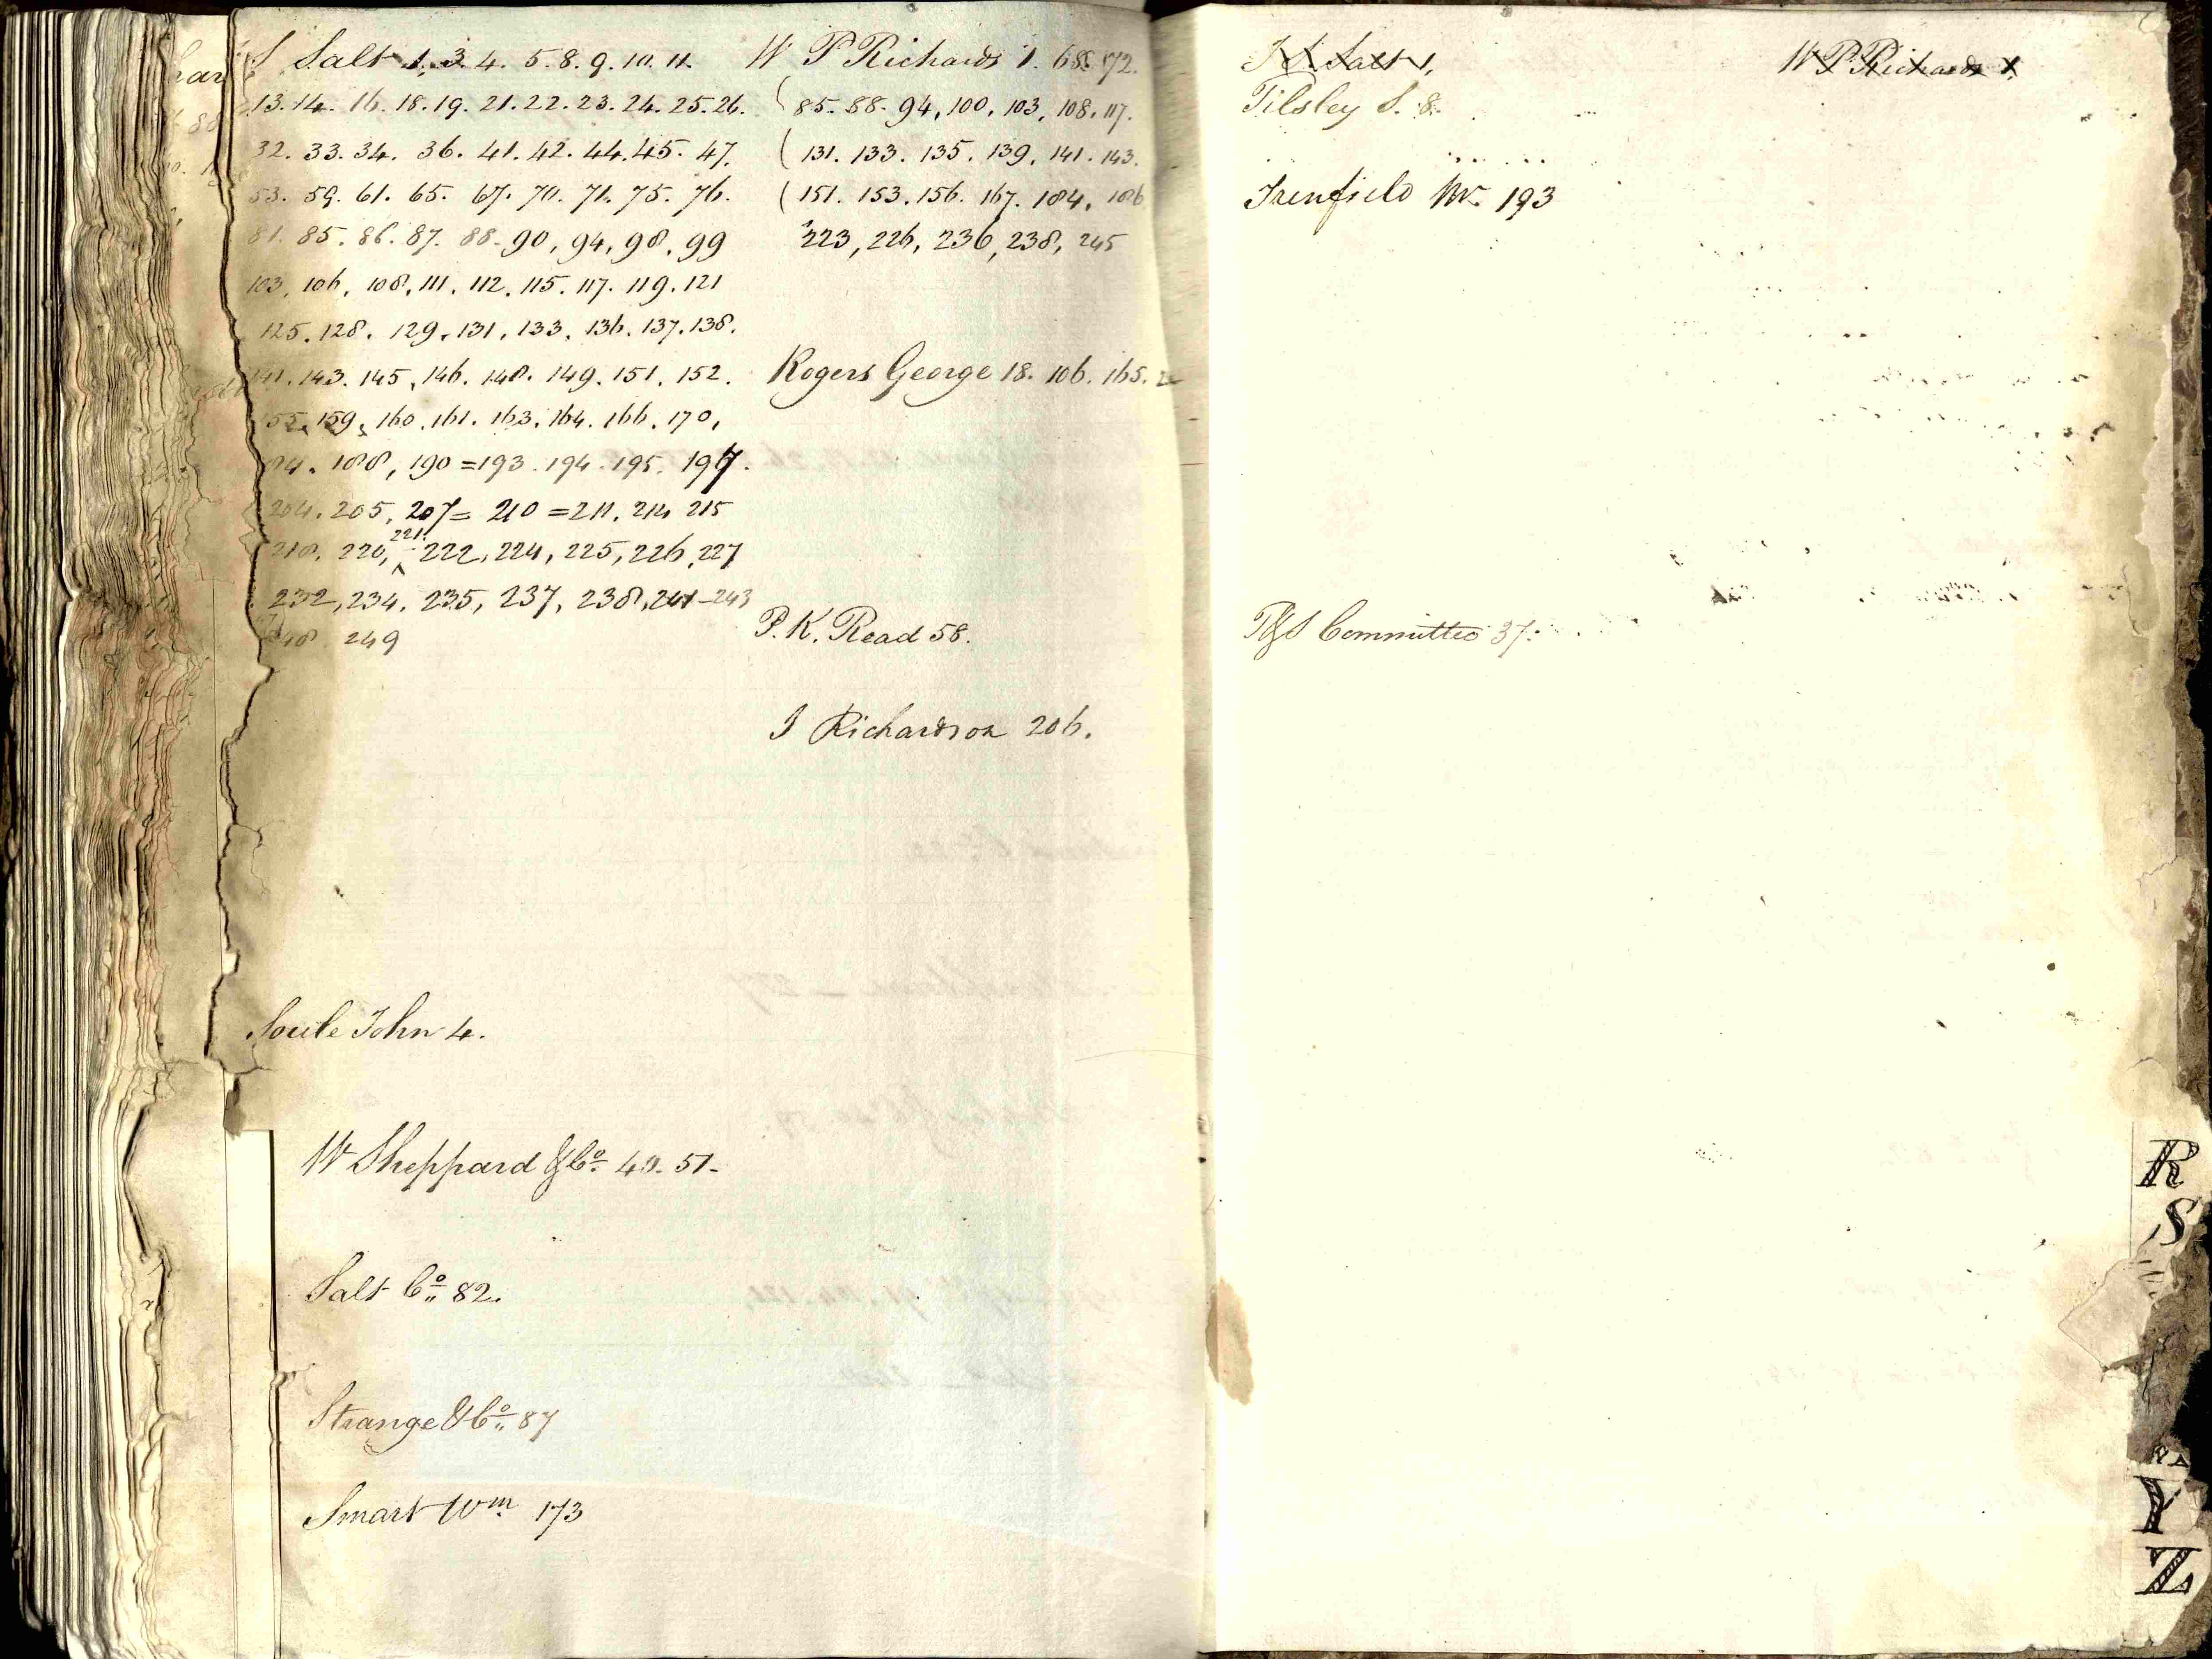 S Salt 1. 3. 4. 5. 8. 9. 10. 11.
13. 14. 16. 18. 19. 21. 22. 23. 24. 25. 26.
32. 33. 34. 36. 41. 42. 44. 45. 47.
53. 59. 61. 65. 67. 70. 71. 75. 76.
81. 85. 86. 87. 88. 90, 94, 98, 99
103, 106, 108, 111, 112, 115. 117. 119. 121
125. 128. 129. 131, 133, 136. 137. 138.
141. 143. 145, 146. 148. 149. 151. 152.
155. 159, 160. 161. 163. 164. 166. 170,
188, 190 = 193. 194. 195. 197.
204. 205, 207 = 210 = 211. 214 215
218, 220, 221 222, 224, 225, 226, 227
232, 234, 235, 237, 238, 241 - 243
248. 249
Soule John 4.
W Sheppard & Co. 40. 51-
Salt Co. 82.
Strange & Co. 87
Smart Wm. 173
W P Richards 1. 68. 72.
85. 88. 94, 100, 103, 108. 117.
131. 133. 135. 139, 141. 143.
151. 153. 156. 167. 184, 186
223, 226, 236, 238, 245
Rogers George 18. 106. 165.
P. K. Read 58.
J Richardson 206.
S. Salt 1.
W P Richards 1.
Tilsley S. 8.
Trenfield Mr. 193
T & S Committee 37.
R
S
Y
Z